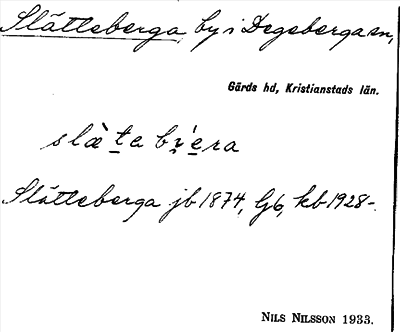 Slätteberga, by i Degeberga sn,
Gärds hd, Kristianstads län.
Slätteberga jb 1874, Gb, kb 1928-.
NILS NILSSON 1933.